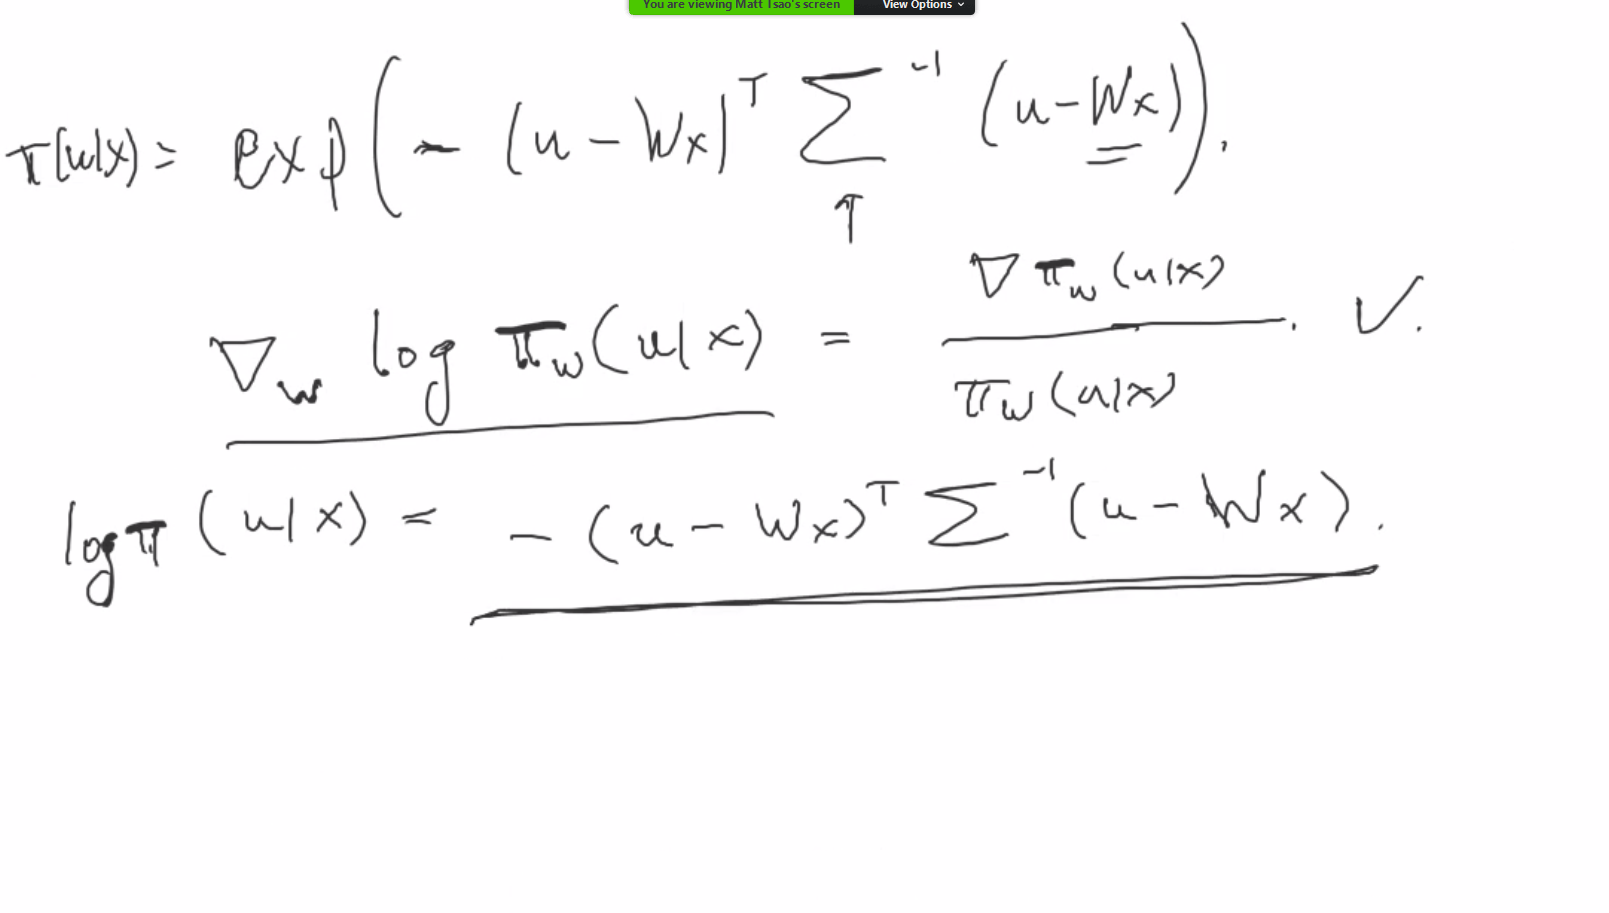 You are viewing Matt Tsao's screen View Options
π(u|x) = exp(-(u - Wx)^T Σ^-1 (u - Wx)).
↑
∇_w log π_w(u|x) = ∇π_w(u|x) / π_w(u|x). ✓.
log π(u|x) = -(u - Wx)^T Σ^-1 (u - Wx).